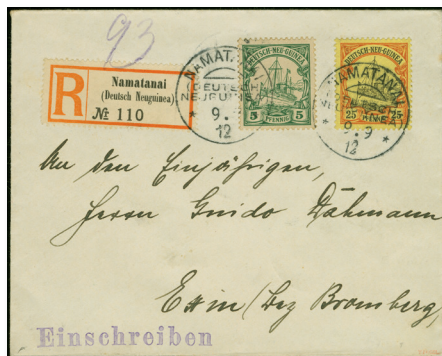 93
R
Namatanai
(Deutsch Neuguinea)
№ 110
NAMATANAI
(DEUTSCH
NEUGUINEA)
* 9. 12 *
DEUTSCH-NEU-GUINEA
5 PFENNIG 5
DEUTSCH-NEU-GUINEA
25 25
NAMATANAI
9
12
An den Einjährigen,
Herrn Guido Dähmann
Exin (Bez Bromberg)
Einschreiben